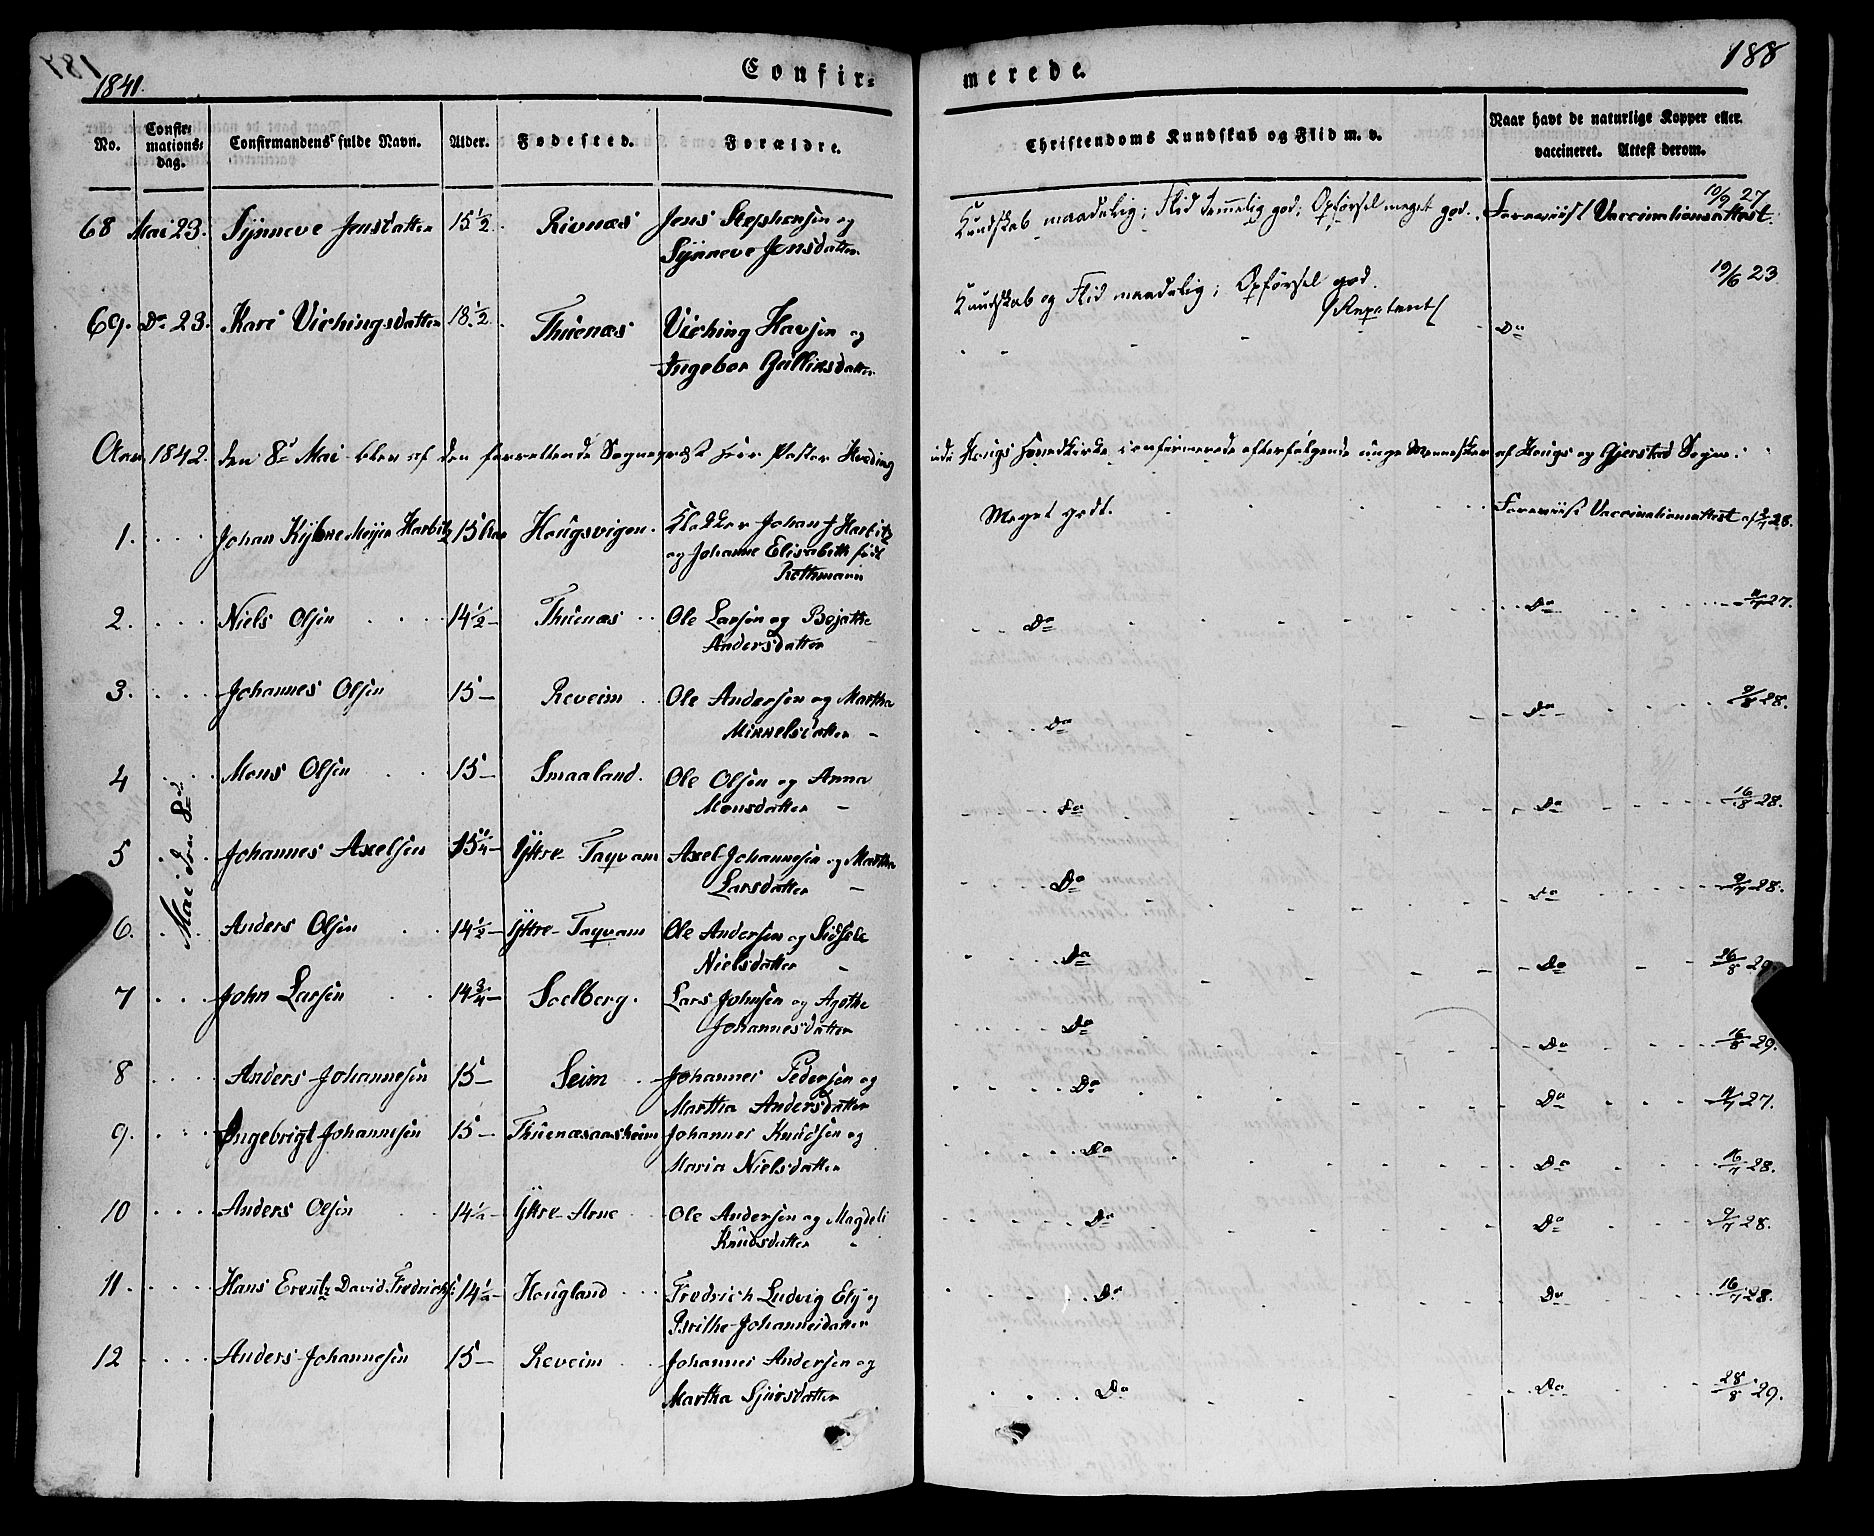 1841.
Confir=
merede.
188
No.
Confir=
mations=
dag.
Confirmandens fulde Navn.
Alder.
Fødested.
Forældre.
Christendoms Kundskab og Flid m. v.
Naar havt de naturlige Kopper eller
vaccineret. Attest derom.
68 Mai 23. Synneve Jensdatter 15 1/2. Rivnæs Jens Stephensen og Kundskab maadelig; Flid temmelig god; Opførsel meget god. Foreviist Vaccinationsattest. 10/9 27
Synneve Jensdatter
69. Do 23. Kari Vichingsdatter 18 1/2. Thuenæs Viching Havsen og Kundskab og Flid maadelig; Opførsel god. Do 19/6 23
/Repetent/
Ingebor Gulliksdatter
Aar 1842 den 8de Mai blev af den forrettende Sognepræst Herr Pastor Hveding
i Hougs Hovedkirke confirmerede efterfølgende unge Mennesker af Hougs og Gjerstad Sogne.
1. Johan Meyer Harbitz 15 Aar Hougsvigen. Klokker Johan Harbitz Meget godt. Foreviist Vaccinationsattest af 28.
og Johanne Elisabeth fød
Rothmann
2. Niels Olsen 14 1/2 Thuenæs Ole Larsen og Do Do 27.
Andersdatter
3. Johannes Olsen 15 Reveim Ole Andersen og Martha Do Do 28.
Mikkelsdatter
4 Mons Olsen 15 Smaaland. Ole Olsen og Anna Do Do 16/8 28.
Monsdatter
Mai den 8de
5 Johannes Axelsen 15 Yttre Taqvam Axel Johannesen og Martha Do Do 28.
Larsdatter
6. Anders Olsen 14 1/2 Yttre Taqvam Ole Andersen og Sidsele Do Do 26/8 29.
Nielsdatter
7 John Larsen 14 3/4 Soelberg. Lars Johnsen og Agethe Do Do 16/8 29.
Johannesdatter
8 Anders Johannesen 15 Seim Johannes Pedersen og Do Do 27.
Martha Andersdatter
9. Ingebrigt Johannesen 15 Thuenæsaasheim Johannes Knudsen og Do Do 16/7 28.
Maria Nielsdatter
10 Anders Olsen 14 1/2 Yttre Arne Ole Andersen og Magdeli Do Do 9/7 28.
Knudsdatter
11. Hans Erentz David Fredrichs. 14 1/2 Hougland Fredrich Ludvig Ely og Do Do 16/7 28.
Brithe Johannesdatter
12 Anders Johannesen 15 Reveim Johannes Andersen og Do Do 28/8 29.
Martha Sjursdatter